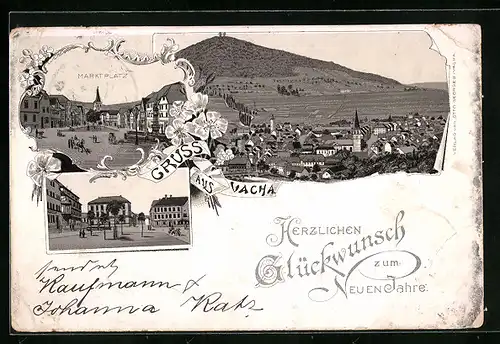 MARKTPLATZ
GRUSS
AUS
VACHA.
HERZLICHEN
Glückwunsch
zum
NEUEN Jahre.
sendet
Kaufmann &
Johanna Katz